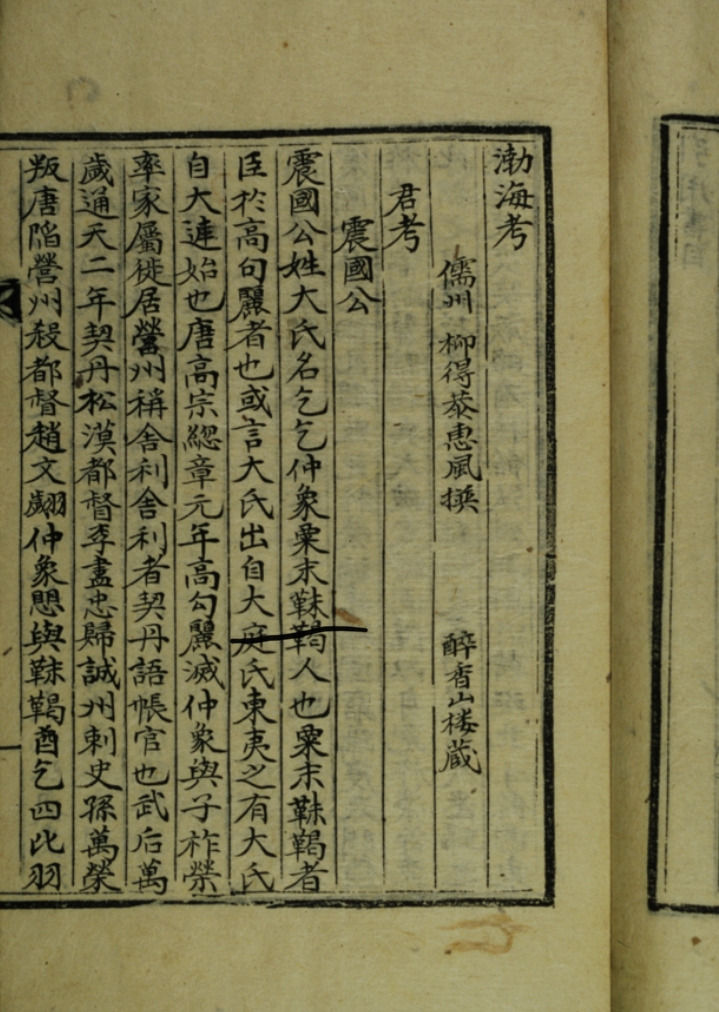 渤海考
儒州 柳得恭惠風撰 醉香山楼蔵
君考
震國公
震國公姓大氏名乞乞仲象粟末靺鞨人也粟末靺鞨者
臣於高句麗者也或言大氏出自大庭氏東夷之有大氏
自大連始也唐高宗緫章元年高句麗滅仲象與子祚榮
率家屬徙居營州稱舍利舍利者契丹語帳官也武后萬
歲通天二年契丹松漠都督李盡忠歸誠州刺史孫萬榮
叛唐陷營州殺都督趙文翽仲象懼與靺鞨酋乞四比羽